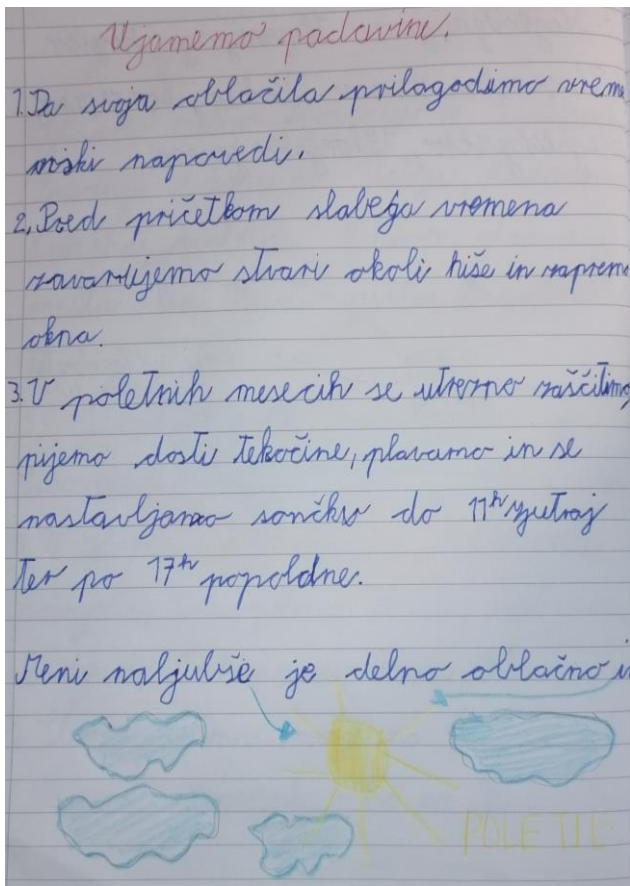 Ujamemo padavine.
1. Da svoja oblačila prilagodimo vrem
enski napovedi.
2. Pred pričetkom slabega vremena
zavarujemo stvari okoli hiše in zaprem
okna.
3. V poletnih mesecih se utrezno zaščitimo,
pijemo dosti tekočine, plavamo in se
nastavljamo sončku do 11h zjutraj
ter po 17h popoldne.
Meni naljubše je delno oblačno in
POLETJE